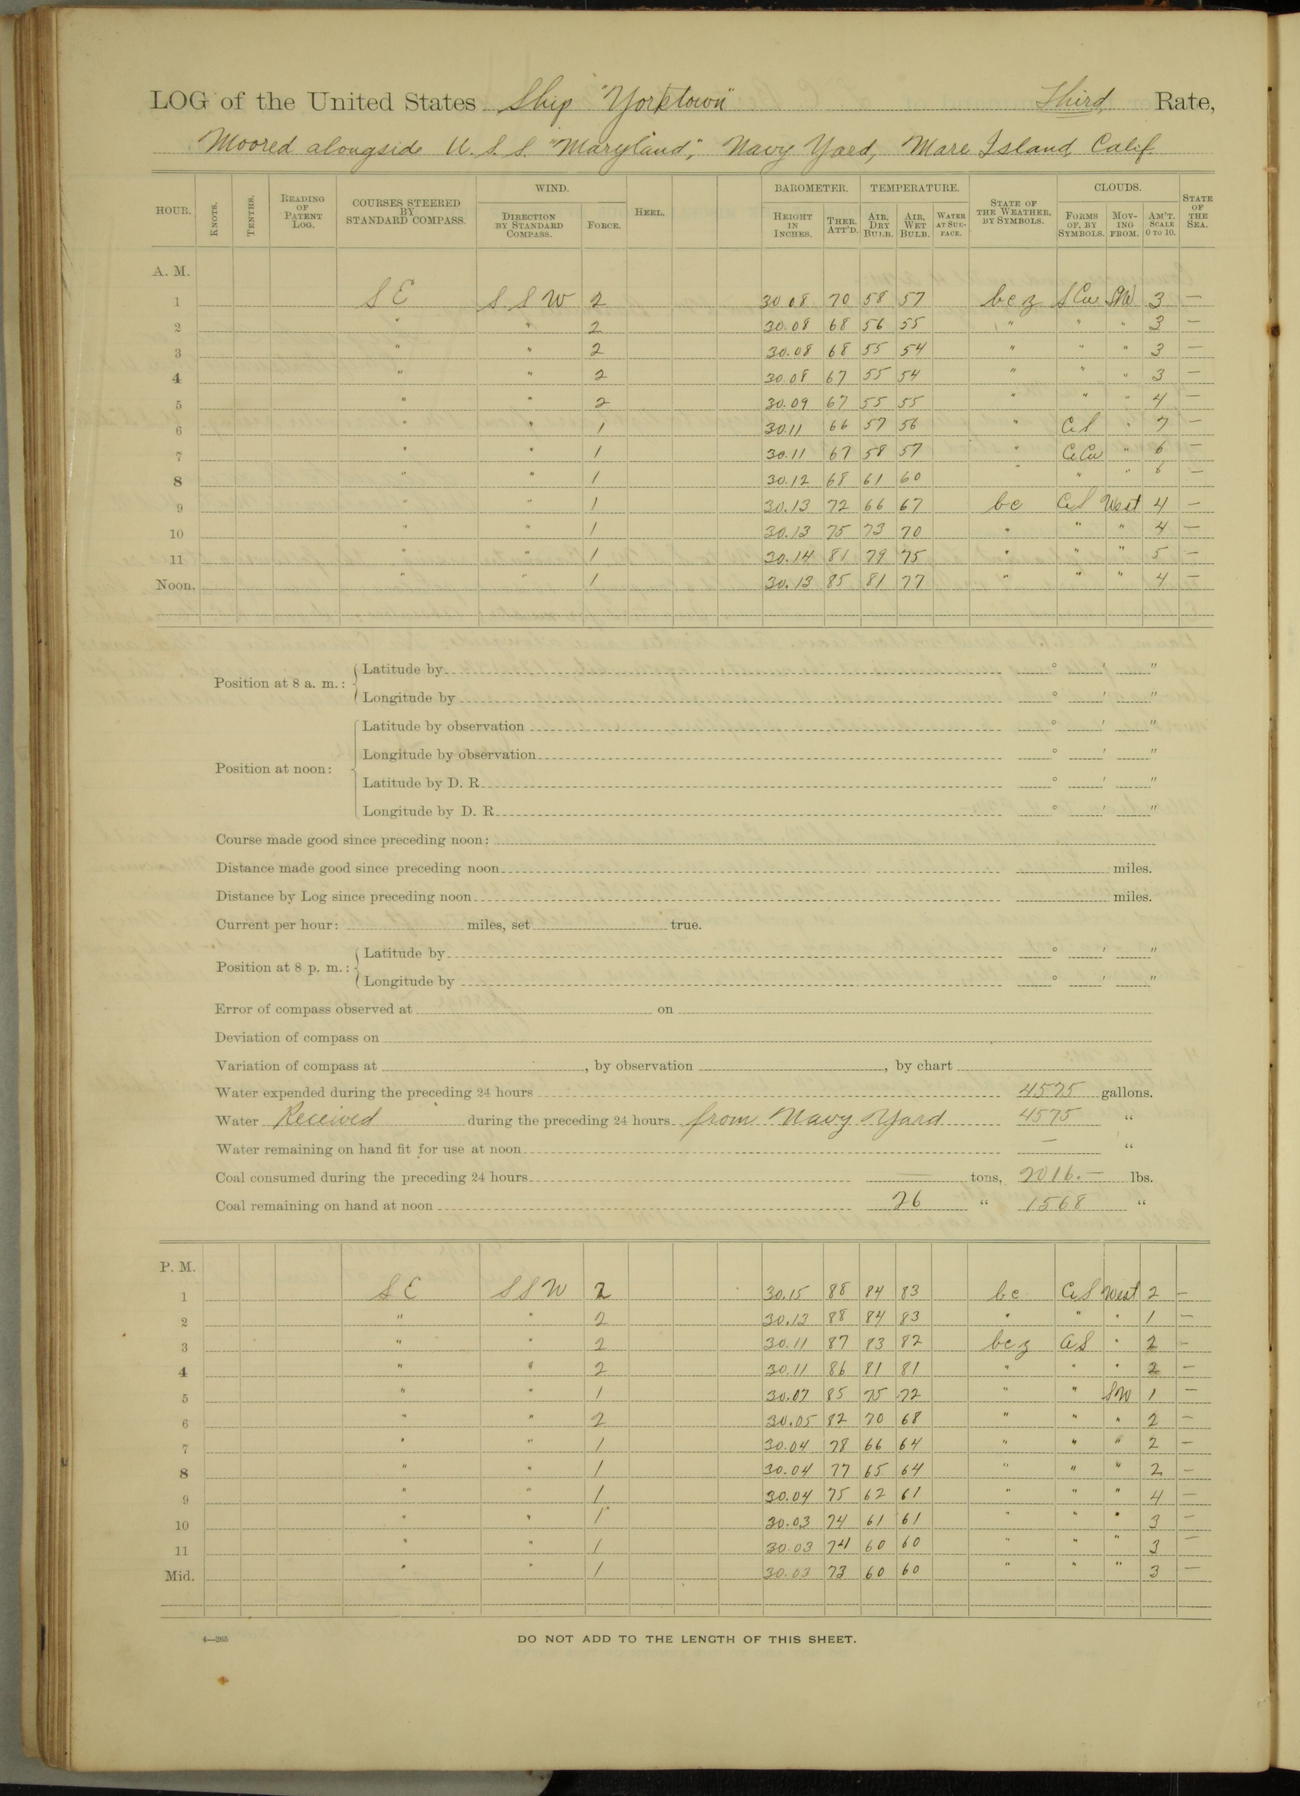 LOG of the United States Ship "Yorktown" Third Rate,
Moored alongside U.S.S. "Maryland," Navy Yard, Mare Island, Calif.
HOUR. KNOTS. TENTHS. READING OF PATENT LOG. COURSES STEERED BY STANDARD COMPASS. WIND. DIRECTION BY STANDARD COMPASS. FORCE. HEEL. BAROMETER. HEIGHT IN INCHES. THER. ATT'D. TEMPERATURE. AIR, DRY BULB. AIR, WET BULB. WATER AT SURFACE. STATE OF THE WEATHER, BY SYMBOLS. CLOUDS. FORMS OF, BY SYMBOLS. MOVING FROM. AM'T. SCALE 0 TO 10. STATE OF THE SEA.
A. M.
1 SE SSW 2 30 08 70 58 57 bcz SCu SW 3 —
2 " " 2 30.08 68 56 55 " " " 3 —
3 " " 2 30.08 68 55 54 " " " 3 —
4 " " 2 30.08 67 55 54 " " " 3 —
5 " " 2 30.09 67 55 55 " " " 4 —
6 " " 1 30.11 66 57 56 " CS " 7 —
7 " " 1 30.11 67 58 57 " CCu " 6 —
8 " " 1 30.12 68 61 60 " " " 6 —
9 " " 1 30.13 72 66 67 bc CS West 4 —
10 " " 1 30.13 75 73 70 " " " 4 —
11 " " 1 30.14 81 79 75 " " " 5 —
Noon. " " 1 30.13 85 81 77 " " " 4 —
Position at 8 a. m.: Latitude by ° ' "
Longitude by ° ' "
Position at noon: Latitude by observation ° ' "
Longitude by observation ° ' "
Latitude by D. R. ° ' "
Longitude by D. R. ° ' "
Course made good since preceding noon:
Distance made good since preceding noon miles.
Distance by Log since preceding noon miles.
Current per hour: miles, set true.
Position at 8 p. m.: Latitude by ° ' "
Longitude by ° ' "
Error of compass observed at on
Deviation of compass on
Variation of compass at , by observation , by chart
Water expended during the preceding 24 hours 4575 gallons.
Water Received during the preceding 24 hours from Navy Yard 4575 "
Water remaining on hand fit for use at noon — "
Coal consumed during the preceding 24 hours — tons, 2016.— lbs.
Coal remaining on hand at noon 26 " 1568 "
P. M.
1 SE SSW 2 30.15 88 84 83 bc CS West 2 —
2 " " 2 30.13 88 84 83 " " " 1 —
3 " " 2 30.11 87 83 82 bcz CS " 2 —
4 " " 2 30.11 86 81 81 " " " 2 —
5 " " 1 30.07 85 75 72 " " SW 1 —
6 " " 2 30.05 82 70 68 " " " 2 —
7 " " 1 30.04 78 66 64 " " " 2 —
8 " " 1 30.04 77 65 64 " " " 2 —
9 " " 1 30.04 75 62 61 " " " 4 —
10 " " 1 30.03 74 61 61 " " " 3 —
11 " " 1 30.03 74 60 60 " " " 3 —
Mid. " " 1 30.03 73 60 60 " " " 3 —
4—265
DO NOT ADD TO THE LENGTH OF THIS SHEET.